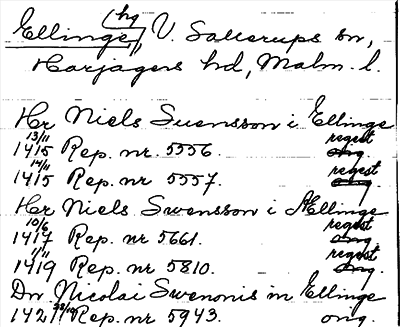 Ellinge, (hg) V. Sallerups sn,
Harjagers hd, Malm. l.
Hr Niels Suensson i Ellinge
1415 13/11 Rep. nr. 5556. orig. regest
1415 14/11 Rep. nr. 5557. orig. regest
Hr Niels Swensson i Ællinge
1417 10/6 Rep. nr 5661. orig. regest
1419 1/11 Rep. nr 5810. orig. regest
Dn Nicolai Swenonis in Ellinge
1421 Rep. nr 5943. orig.